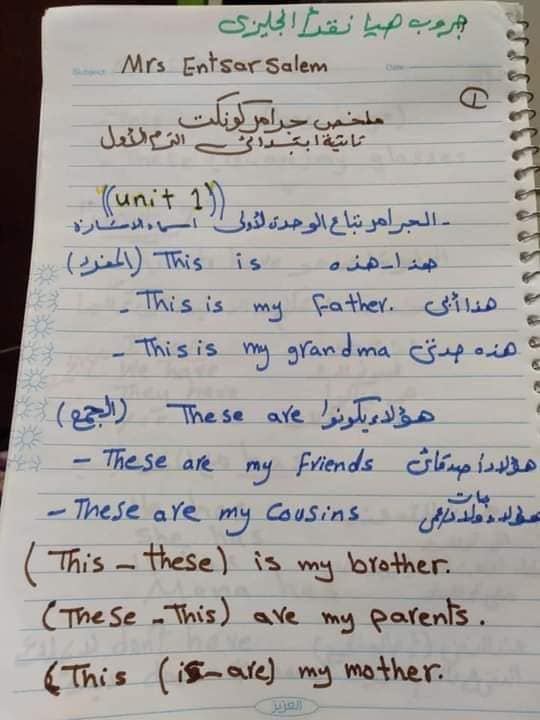 جروب هيا نقدأ انجليزى
Subject: Mrs Entsar Salem Date:
①
ملخص جرامر كونكت
تانية ابتدائى الترم الأول
((unit 1))
- الجرامر بتاع الوحدة لأولى أسماء الاشارة
هذا-هذه This is (المفرد)
- This is my father. هذا أبى
- This is my grandma هذه جدتى
هؤلاء يكونوا These are (الجمع)
- These are my friends هؤلاء أصدقائى
- These are my cousins هؤلاء ولاد عمى
(This - these) is my brother.
(These - This) are my parents.
(This (is - are) my mother.
العزيز